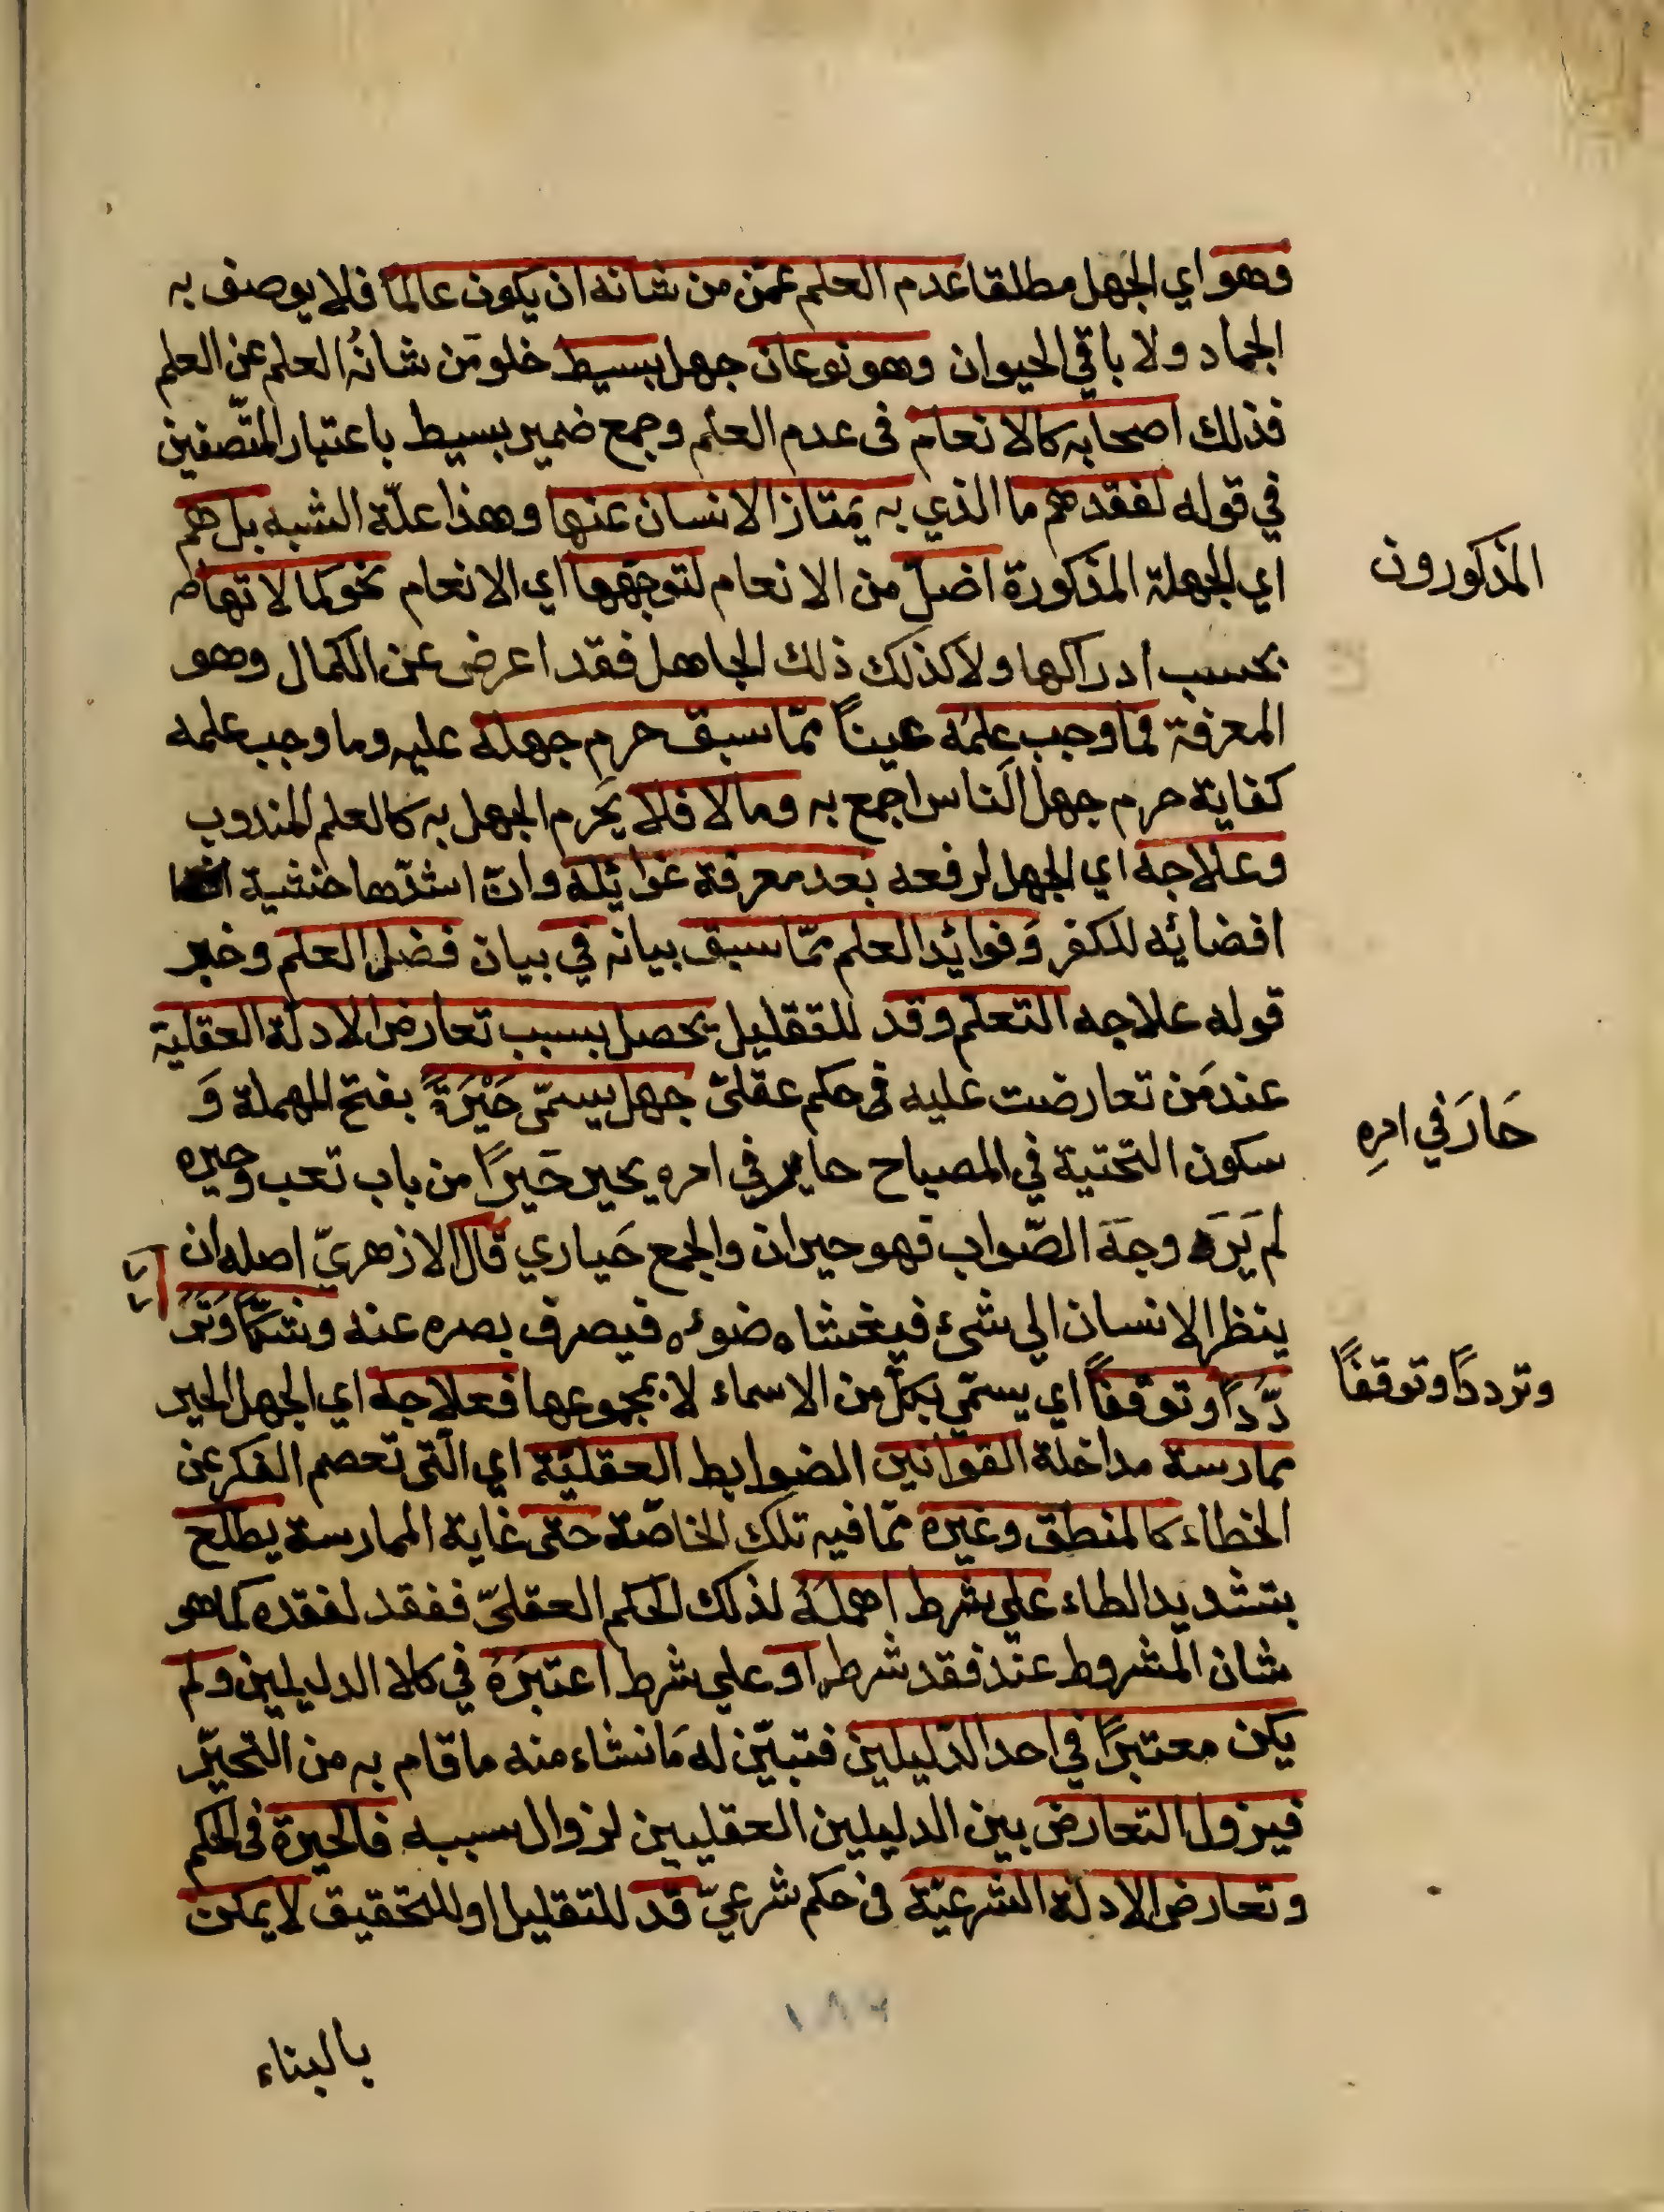 وهو اي الجهل مطلقا عدم العلم عمّن من شانه ان يكون عالما فلا يوصف به
الجماد ولا باقي الحيوان وهو نوعان جهل بسيط خلو من شانُه العلم عن العلم
فذلك اصحابه كالانعام فى عدم العلم وجمع ضمير بسيط باعتبار المتّصفين
في قوله لفقدهم ما الذي به يمتاز الانسان عنها وهذا علّة الشبه بل هم
المذكورون
اي الجهلة المذكورة اضلّ من الانعام لتوجّهها اي الانعام نحو كمالاتها
بحسب ادراكها ولا كذلك ذلك الجاهل فقد اعرض عن الكمال وهو
المعرفة فما وجب علمُه عيناً ممّا سبق حرم جهله عليه وما وجب علمه
كفاية حرم جهل الناس اجمع به وما لا فلا يحرم الجهل به كالعلم المندوب
وعلاجه اي الجهل لرفعه بعد معرفة غوائله وانّ اشدّها خشية
افضائه للكفر وَفوائد العلم ممّا سبق بيانه في بيان فضل العلم وخبر
قوله علاجه التعلّم وقد للتقليل يحصل بسبب تعارض الادلّة العقلية
عند مَن تعارضت عليه فى حكم عقلىّ جهل يسمّى حَيْرَةً بفتح المهملة وَ
حَارَ في امرِهِ
سكون التحتية في المصباح حاير في امره يحير حَيَراً من باب تعب وحيره
لم يَرَه وجهَ الصّواب فهو حيران والجمع حَياري قال الازهريّ اصله ان
ينظر الانسان الي شىء فيغشاه ضوءه فيصرف بصره عنه وشكّاً وَتَرَ
وترددًا وتوقفًا
دُّداً وتوقّفاً اي يسمّي بكلّ من الاسماء لا بمجموعها فعلاجه اي الجهل الحير
ممارسة مداخلة القوانين الضوابط العقليّة اي الّتى تعصم الفكر عن
الخطاء كالمنطق وغيره ممّا فيه تلك الخاصّة حتى غاية الممارسة يطلّع
بتشديد الطاء علي شرط اهملَهُ لذلك الحكم العقليّ ففقد لفقده كما هو
شان المشروط عند فقد شرطه او علي شرط اعتبَرَهُ في كلا الدليلين ولم
يكن معتبرًا في احد الدّليلين فتبيّن له مَا نشاء منه ما قام به من التحيّر
فيزول التعارض بين الدليلين العقليين لزوال سببه فالحيرة فى الحكم
وتعارض الادلّة الشرعيّة فى حكم شرعيّ قد للتقليل او للتحقيق لا يمكن
١٨٦
بالبناء